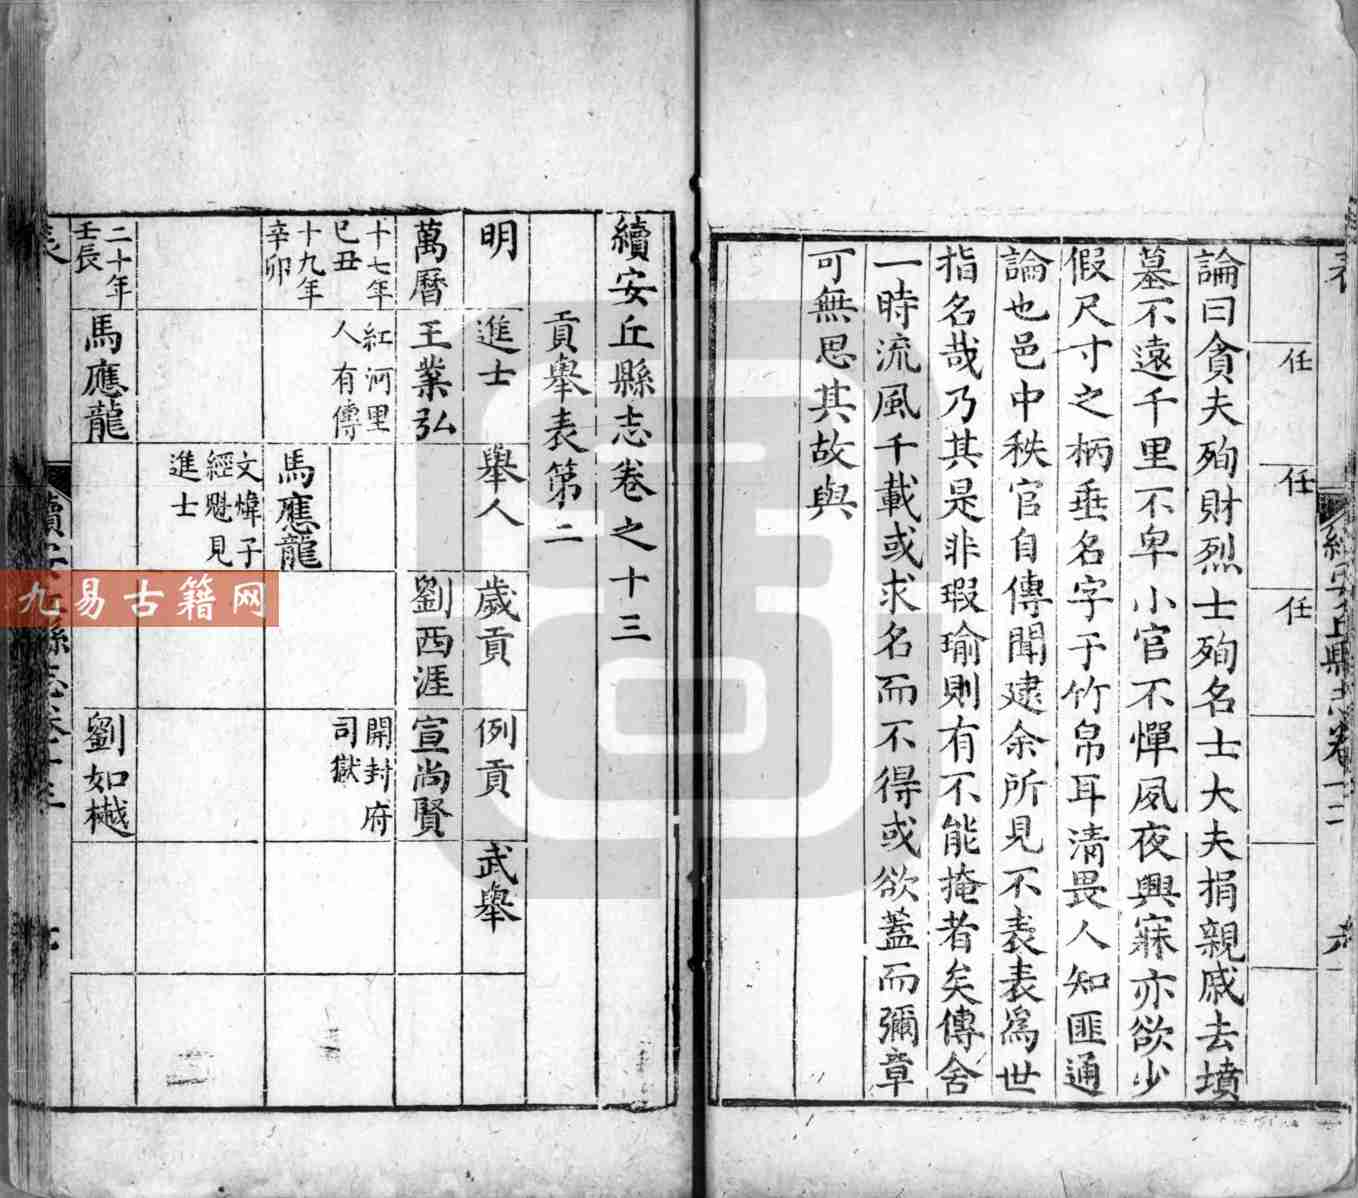 任
任
任
論曰貪夫殉財烈士殉名士大夫捐親戚去墳
墓不遠千里不卑小官不憚夙夜興寐亦欲少
假尺寸之柄垂名字于竹帛耳清畏人知匪通
論也邑中秩官自傳聞逮余所見不表表為世
指名哉乃其是非瑕瑜則有不能掩者矣傳舍
一時流風千載或求名而不得或欲蓋而彌章
可無思其故與
續安丘縣志卷之十三
貢舉表第二
明
進士
舉人
歲貢
例貢
武舉
萬曆
王業弘
劉西涯
宣尚賢
十七年
己丑
紅河里
人有傳
開封府
司獄
十九年
辛卯
馬應龍
文煒子
經魁見
進士
二十年
壬辰
馬應龍
劉如樾
九易古籍网